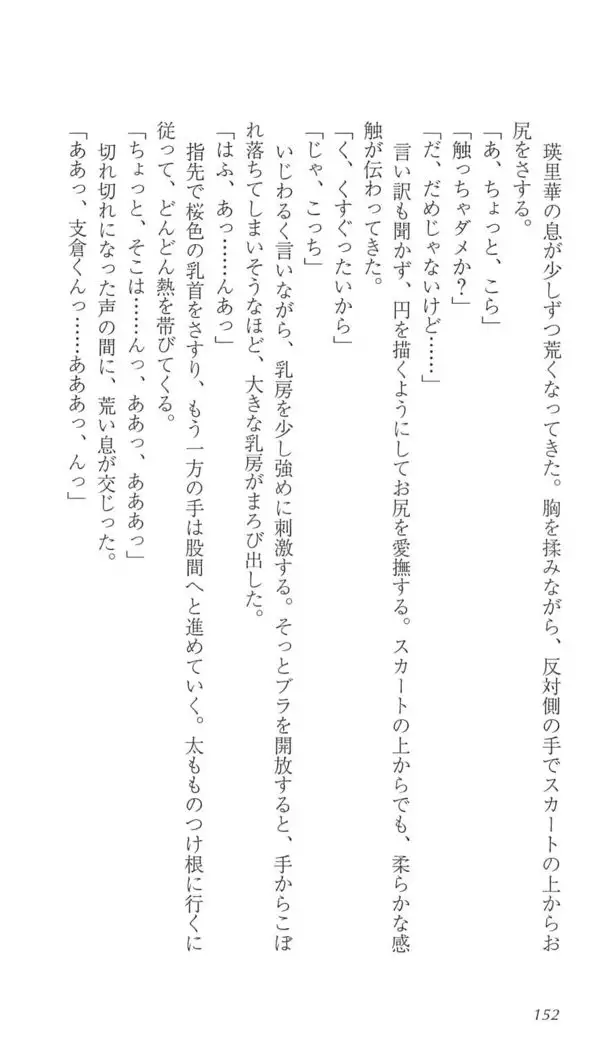 瑛里華の息が少しずつ荒くなってきた。胸を揉みながら、反対側の手でスカートの上からお
尻をさする。
「あ、ちょっと、こら」
「触っちゃダメか？」
「だ、だめじゃないけど……」
言い訳も聞かず、円を描くようにしてお尻を愛撫する。スカートの上からでも、柔らかな感
触が伝わってきた。
「く、くすぐったいから」
「じゃ、こっち」
いじわるく言いながら、乳房を少し強めに刺激する。そっとブラを開放すると、手からこぼ
れ落ちてしまいそうなほど、大きな乳房がまろび出した。
「はふ、あっ……んあっ」
指先で桜色の乳首をさすり、もう一方の手は股間へと進めていく。太もものつけ根に行くに
従って、どんどん熱を帯びてくる。
「ちょっと、そこは……んっ、ああっ、あああっ」
切れ切れになった声の間に、荒い息が交じった。
「ああっ、支倉くんっ……あああっ、んっ」
152